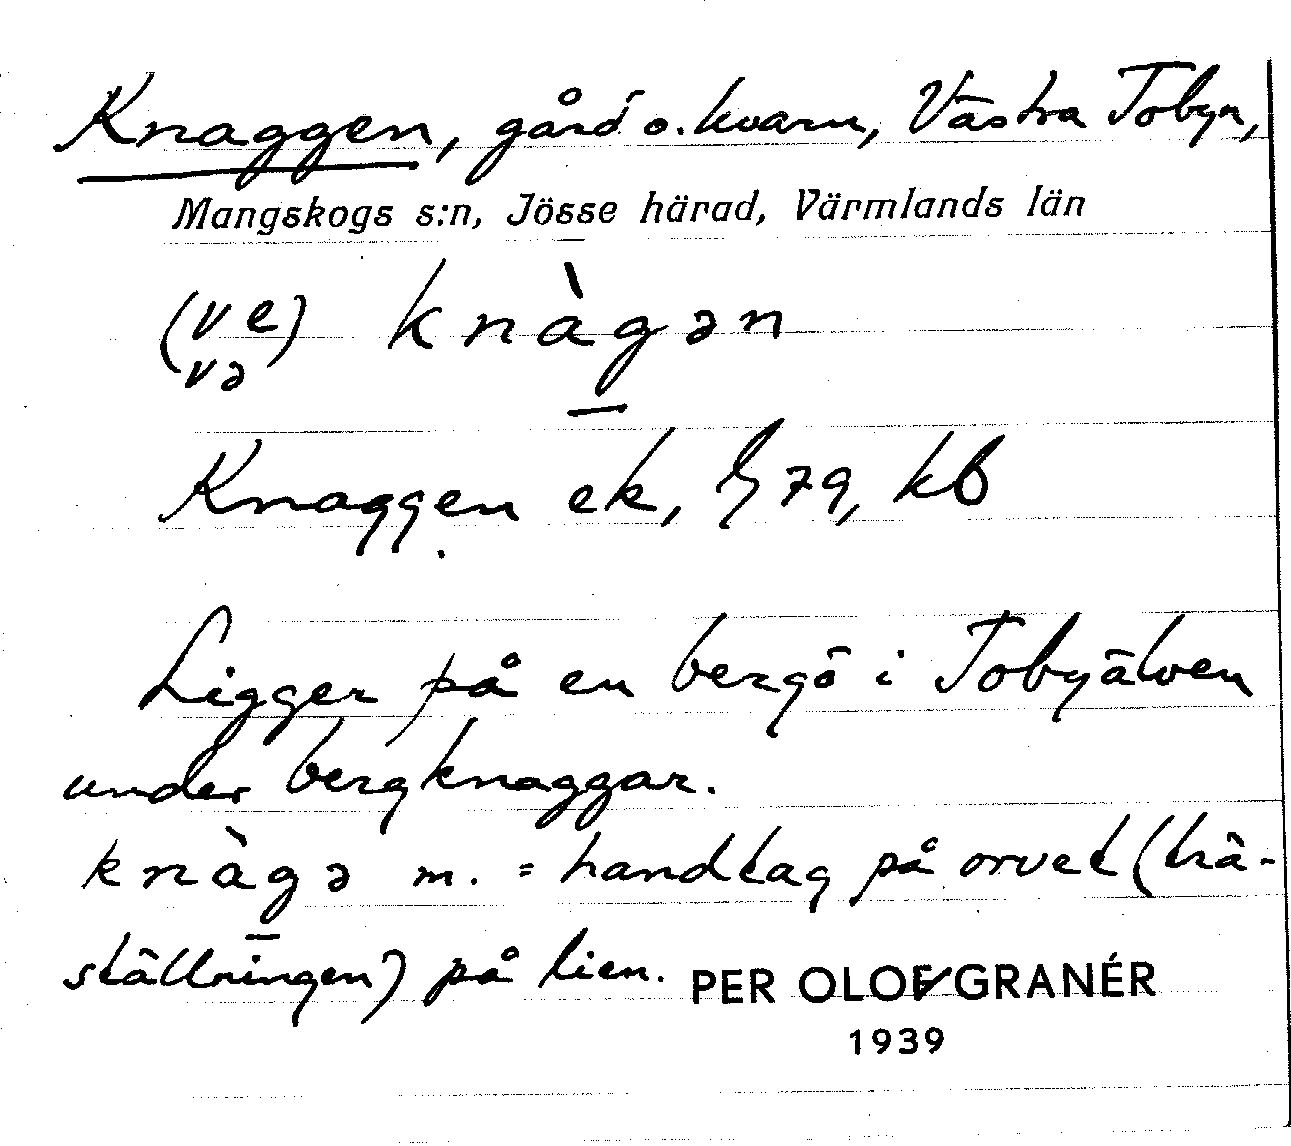 Knaggen, gård o. kvarn, Västra Tobyn,
Mangskogs s:n, Jösse härad, Värmlands län
(ve) knàgən
və
Knaggen ek, 79, kb
Ligger på en bergö i Tobyälven
under bergknaggar.
knàgə m. = handtag på orvet (trä-
ställningen) på lien. PER OLOF GRANÉR
1939